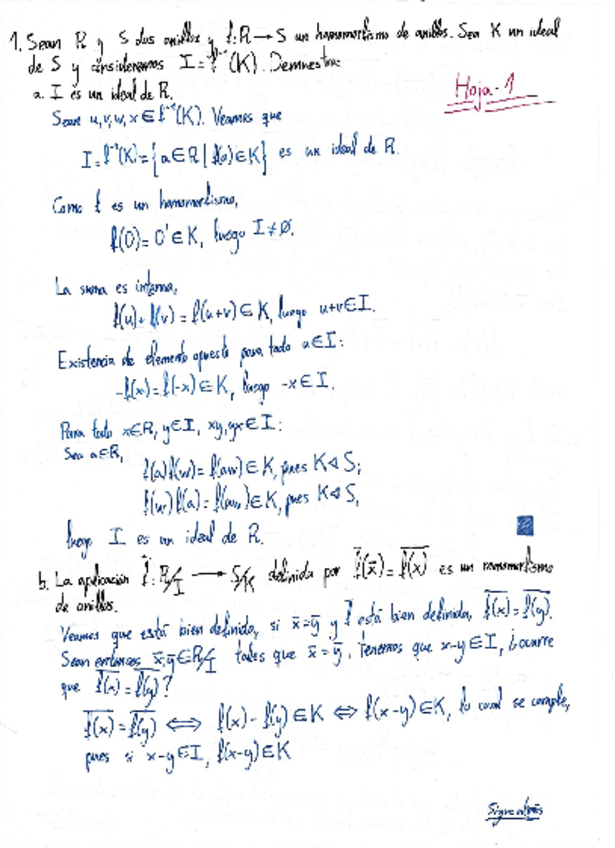 1. Sean R y S dos anillos y f: R → S un homomorfismo de anillos. Sea K un ideal
de S y consideremos I = f⁻¹(K). Demuestra:
a. I es un ideal de R.
Hoja-1
Sean u,v,w,x ∈ f⁻¹(K). Veamos que
I = f⁻¹(K) = {a ∈ R | f(a) ∈ K} es un ideal de R.
Como f es un homomorfismo,
f(0) = 0' ∈ K, luego I ≠ ∅.
La suma es interna,
f(u) + f(v) = f(u+v) ∈ K, luego u+v ∈ I.
Existencia de elemento opuesto para todo a ∈ I:
-f(x) = f(-x) ∈ K, luego -x ∈ I.
Para todo x ∈ R, y ∈ I, xy, yx ∈ I:
Sea a ∈ R,
f(a)f(w) = f(aw) ∈ K, pues K ⊲ S;
f(w)f(a) = f(aw) ∈ K, pues K ⊲ S,
luego I es un ideal de R.
b. La aplicación f̄: R/I → S/K definida por f̄(x̄) = \overline{f(x)} es un monomorfismo
de anillos.
Veamos que está bien definida, si x̄ = ȳ y f̄ está bien definida, \overline{f(x)} = \overline{f(y)}.
Sean entonces x̄, ȳ ∈ R/I tales que x̄ = ȳ. Tenemos que x-y ∈ I, ¿ocurre
que \overline{f(x)} = \overline{f(y)}?
\overline{f(x)} = \overline{f(y)} ⟺ f(x) - f(y) ∈ K ⟺ f(x-y) ∈ K, lo cual se cumple,
pues si x-y ∈ I, f(x-y) ∈ K
Sigue atrás